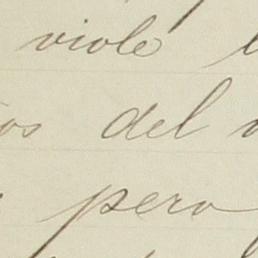 viole
os del
pero